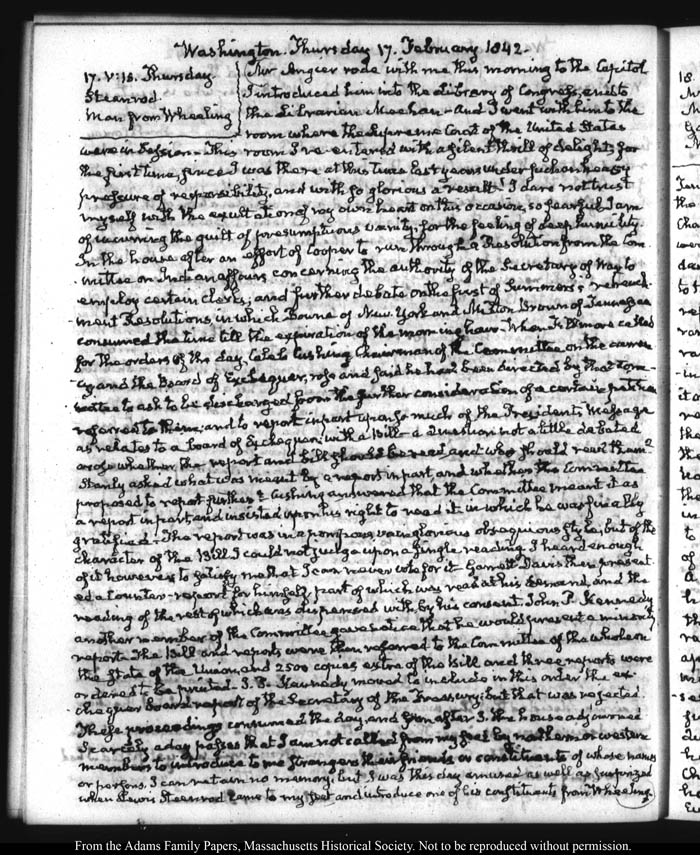 Washington. Thursday 17. February 1842.
17. V:15. Thursday.
Steenrod
Man from Wheeling
Mr Angier rode with me this morning to the Capitol
I introduced him into the Library of Congress, and to
the Librarian Meehan. And I went with him to the
room where the Supreme Court of the United States
were in Session. This room I re-entered with a silent thrill of delight, for
the first time, since I was there at this time last year under such an heavy
pressure of responsibility, and with so glorious a result! I dare not trust
myself with the exultation of my own heart on this occasion, so fearful I am
of incurring the guilt of presumptuous vanity, for the feeling of deep humility.
In the house after an effort of Cooper to run through a Resolution from the Com-
mittee on Indian affairs, concerning the authority of the Secretary of War to
employ certain clerks; and further debate on the first of Summers's retrench-
ment Resolutions, in which Bowne of New York and Milton Brown of Tennessee
consumed the time till the expiration of the morning hour. When Fillmore called
for the orders of the day, Caleb Cushing Chairman of the Committee on the curren-
cy, and the Board of Exchequer, rose and said he had been directed by that Com-
mittee to ask to be discharged from the further consideration of a certain petition
referred to them; and to report in part upon so much of the President's Message
as relates to a board of Exchequer; with a Bill. A Question not a little debated
arose whether the report and bill should be read, and who should read them?
Stanly asked what was meant by a report in part, and whether the Committee
proposed to report further? Cushing answered that the Committee meant it as
a report in part, and insisted upon his right to read it in which he was finally
gratified. The report was in a pompous, vain glorious obsequious style, but of the
character of the Bill I could not judge upon a single reading. I heard enough
of it however to satisfy me that I can never vote for it. Garrett Davis then present-
ed a Counter-report for himself, part of which was read at his demand, and the
reading of the rest of which was dispensed with by his consent. John P. Kennedy
another member of the Committee gave notice that he would present a minority
report. The Bill and reports were then referred to the Committee of the whole on
the State of the Union, and 2500 copies extra of the Bill and three reports were
ordered to be printed. J. P. Kennedy moved to include in this order the ex-
chequer board report of the Secretary of the Treasury; but that was rejected.
These proceedings consumed the day, and soon after 3. the house adjourned
Scarcely a day passes that I am not called from my seat by northern or western
members to introduce to me strangers their friends or constituents of whose names
or persons, I can retain no memory, but I was this day amused as well as surprized
when Lewis Steenrod came to my seat and introduce one of his constituents from Wheeling
From the Adams Family Papers, Massachusetts Historical Society. Not to be reproduced without permission.